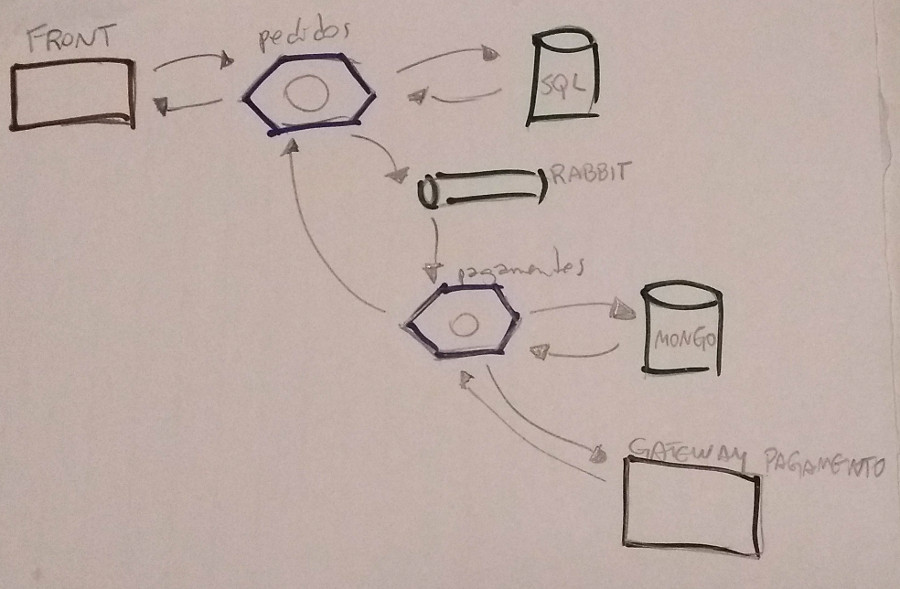 FRONT
pedidos
SQL
RABBIT
pagamentos
MONGO
GATEWAY PAGAMENTO